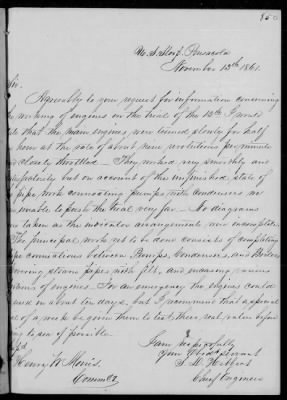 850
U.S. Sloop Pensacola
November 13th 1861.
Sir,
Agreeably to your request for information concerning
the working of engines on the trial of the 12th I would
that the main engines were turned slowly for half
hour at the rate of about nine revolutions per minute
closely throttled - They worked very smoothly and
satisfactorily but on account of the unfinished state of
pipe work connecting pumps with condensers we
unable to push the trial very far - No diagrams
taken as the indicator arrangement was incomplete.
The principal work yet to be done consists of completing
pipe connections between Pumps, Condensers, and Boilers
covering steam pipes with felt, and encasing various
of engines - For an emergency the engines could
in about ten days, but I recommend that a period
of a week be given them to test their real value before
to sea if possible.
I am respectfully
Your Obdt Servant
S. D. Hibbert
Chief Engineer
Henry W. Morris,
Comm'dr